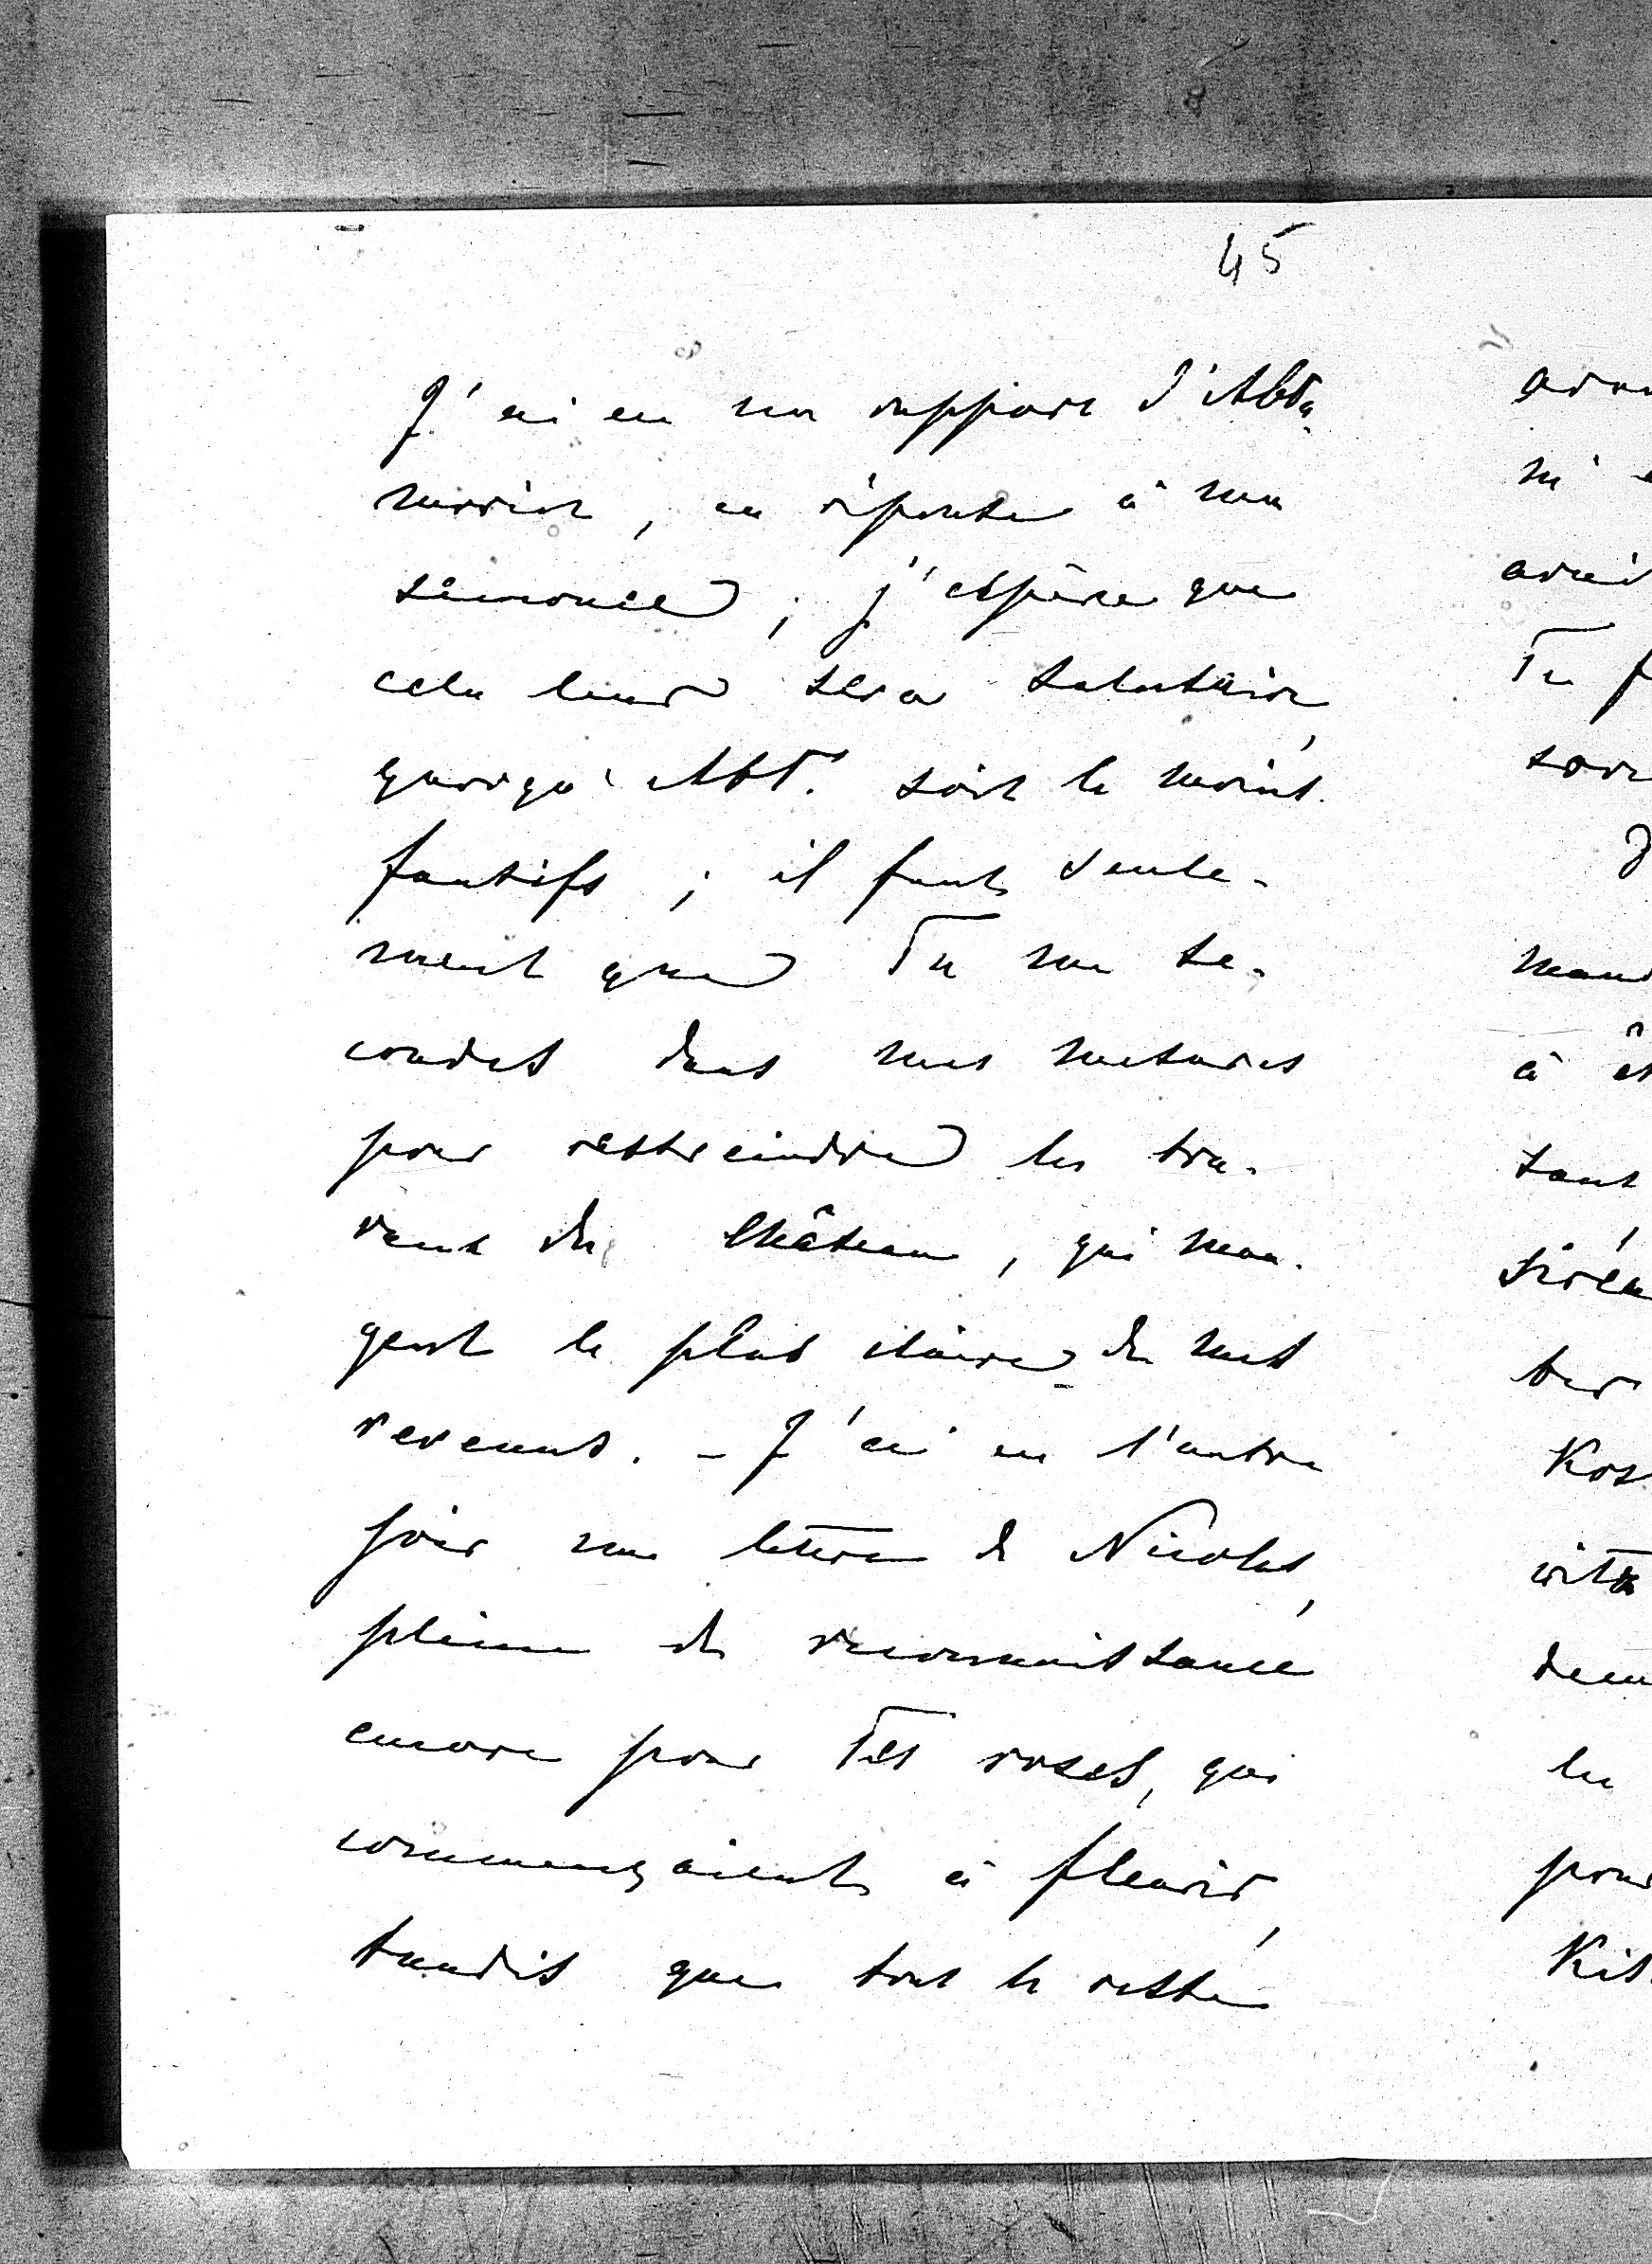 45
J'ai eu un rapport d'Abba-
merrick, en réponse à ma
semonce ; j'espère que
cela leur sera salutaire,
quoiqu' Abb. soit le moins
fautifs ; il faut seule-
ment que Tu me se-
condes dans mes mesures
pour restreindre les tra-
vaux du Château, qui man-
gent le plus claire de nos
revenus. - J'ai eu l'autre
jour une lettre de Nicolas,
pleine de reconnaissance
encore pour Tes roses, qui
commençaient à fleurir,
tandis que tout le reste
ni
Tu
à
tant
Kos
le
pour